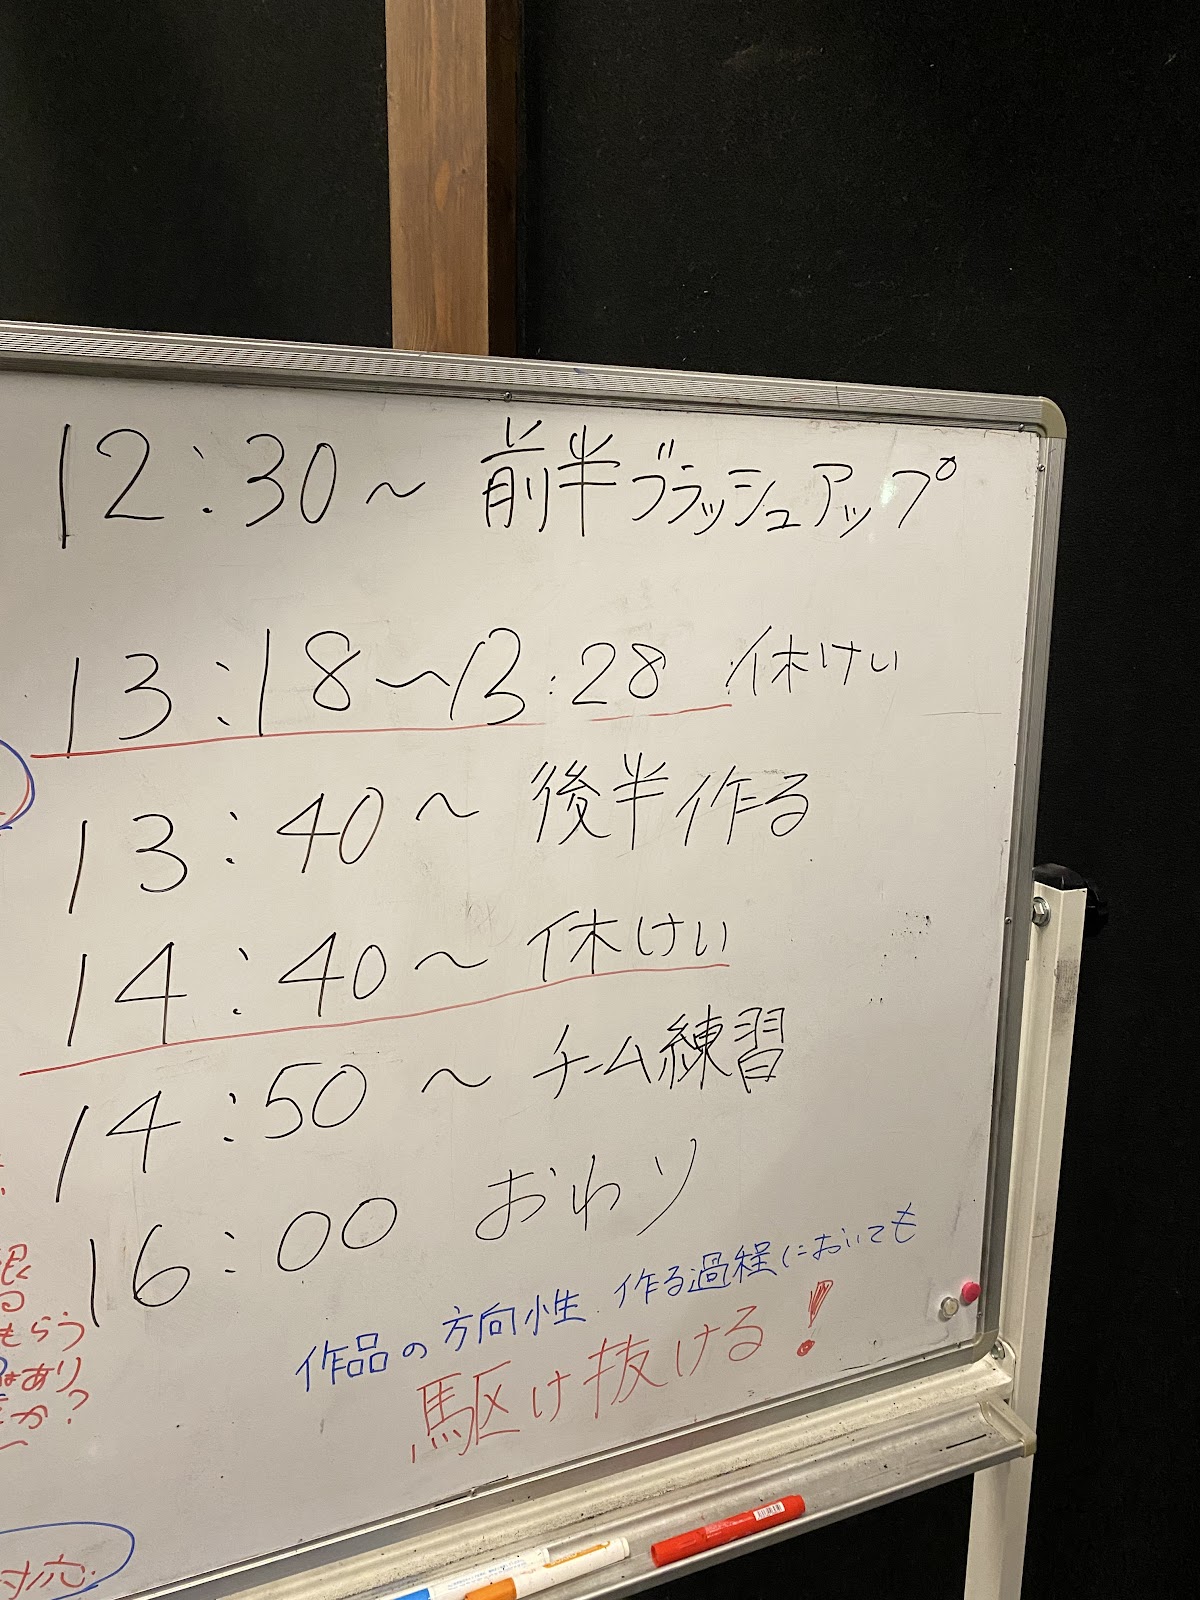 12:30〜 前半ブラッシュアップ
13:18〜13:28 休けい
13:40〜 後半作る
14:40〜 休けい
14:50〜 チーム練習
16:00 おわり
作品の方向性 作る過程においても
駆け抜ける!
もらう
はあり
か?
対応